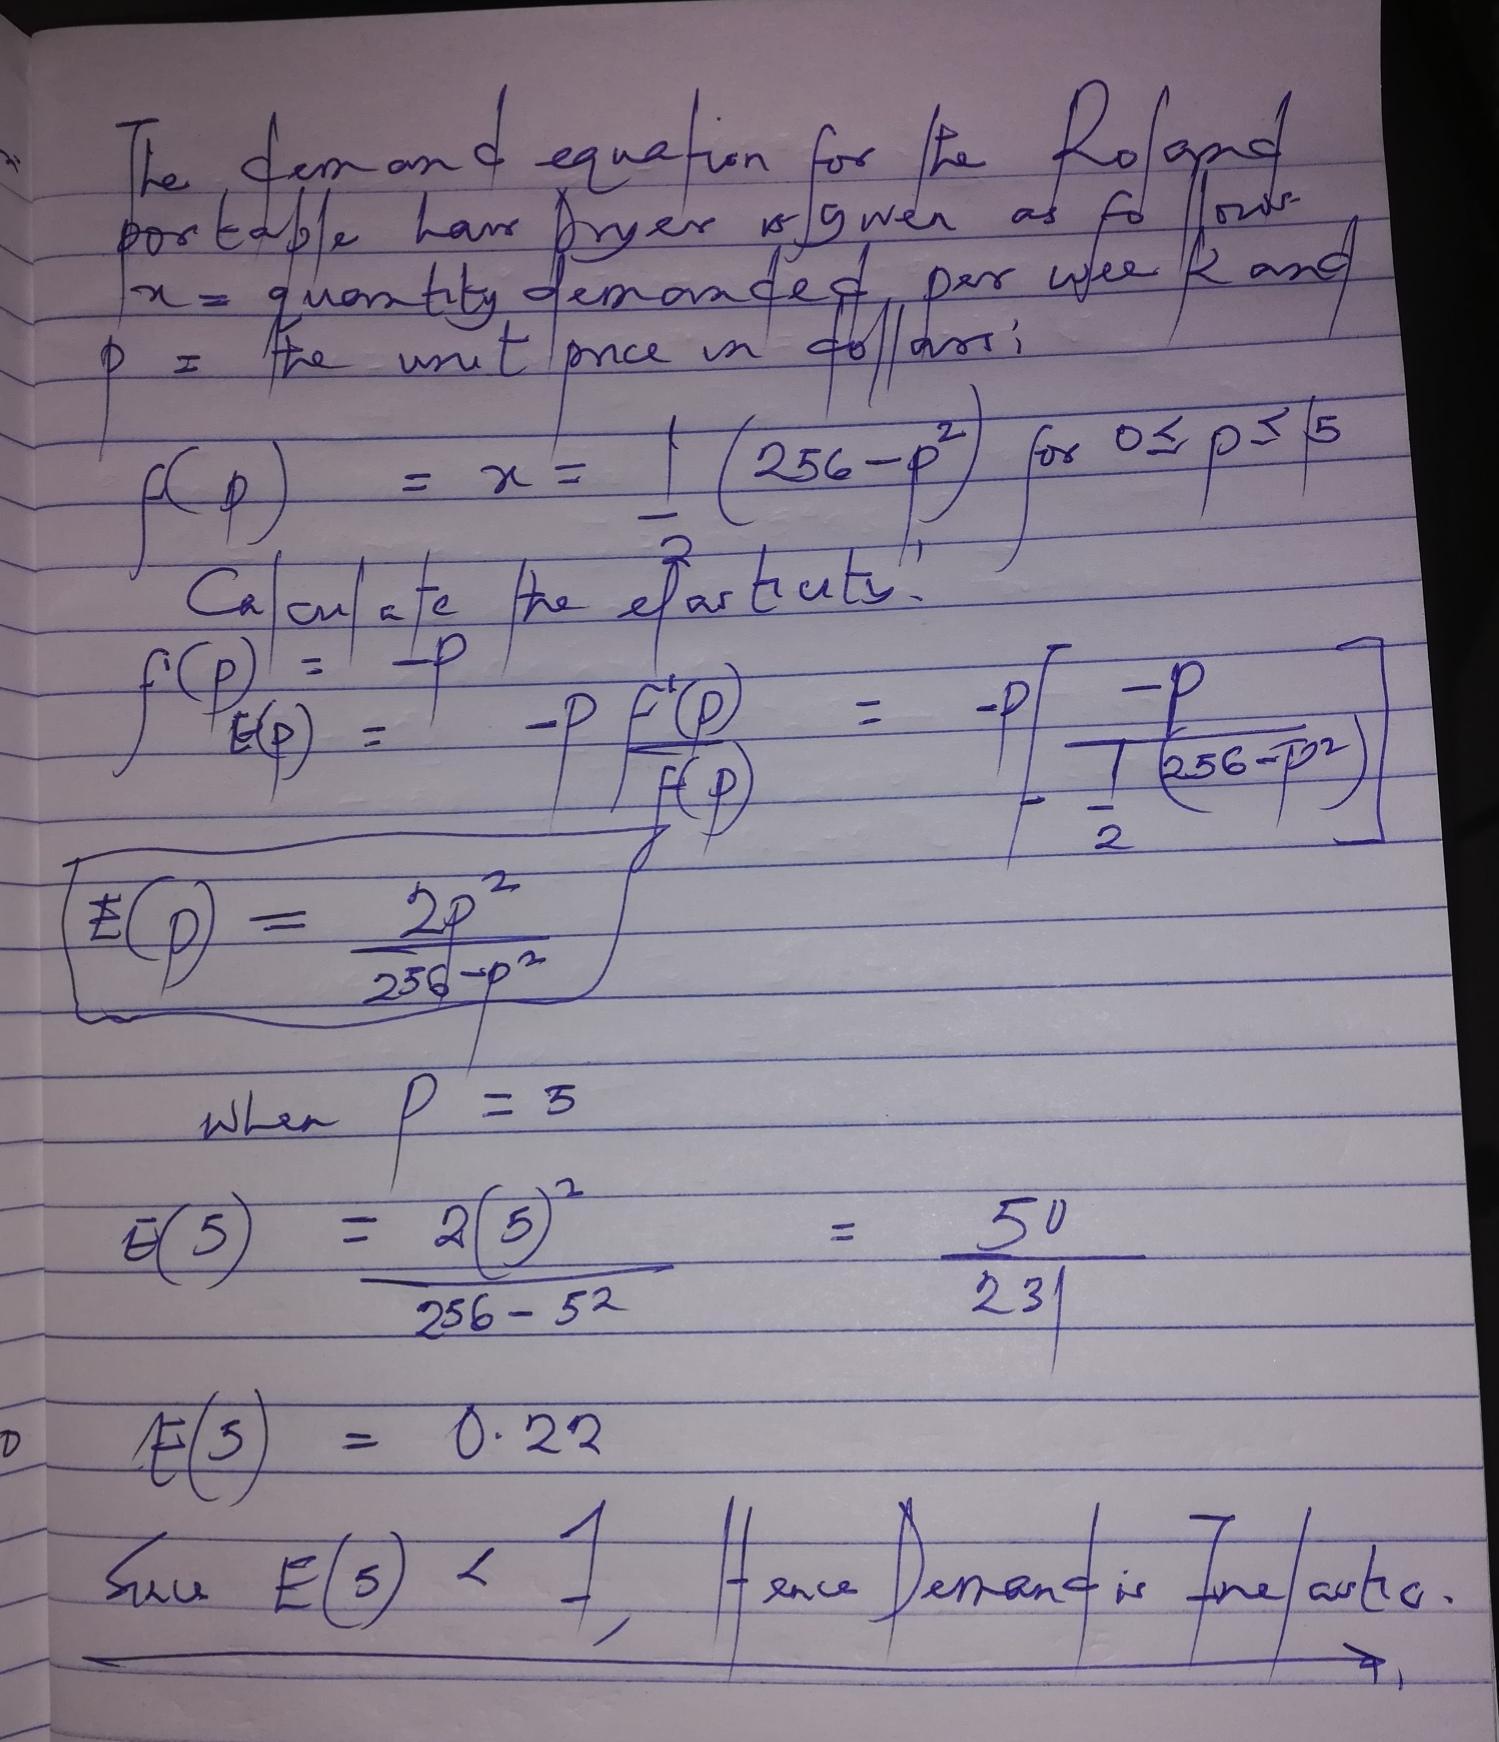 The demand equation for the Roland
portable hair Dryer is given as follows
x = quantity demanded per week and
p = the unit price in dollars;
f(p) = x = 1/2 (256-p²) for 0 ≤ p ≤ 15
Calculate the elasticity!
f'(p) = -p
E(p) = -p f'(p)/f(p) = -p [ -p / 1/2 (256-p²) ]
E(p) = 2p² / 256-p²
when p = 5
E(5) = 2(5)² / 256-5² = 50/231
E(5) = 0.22
Since E(5) < 1, Hence Demand is Inelastic.